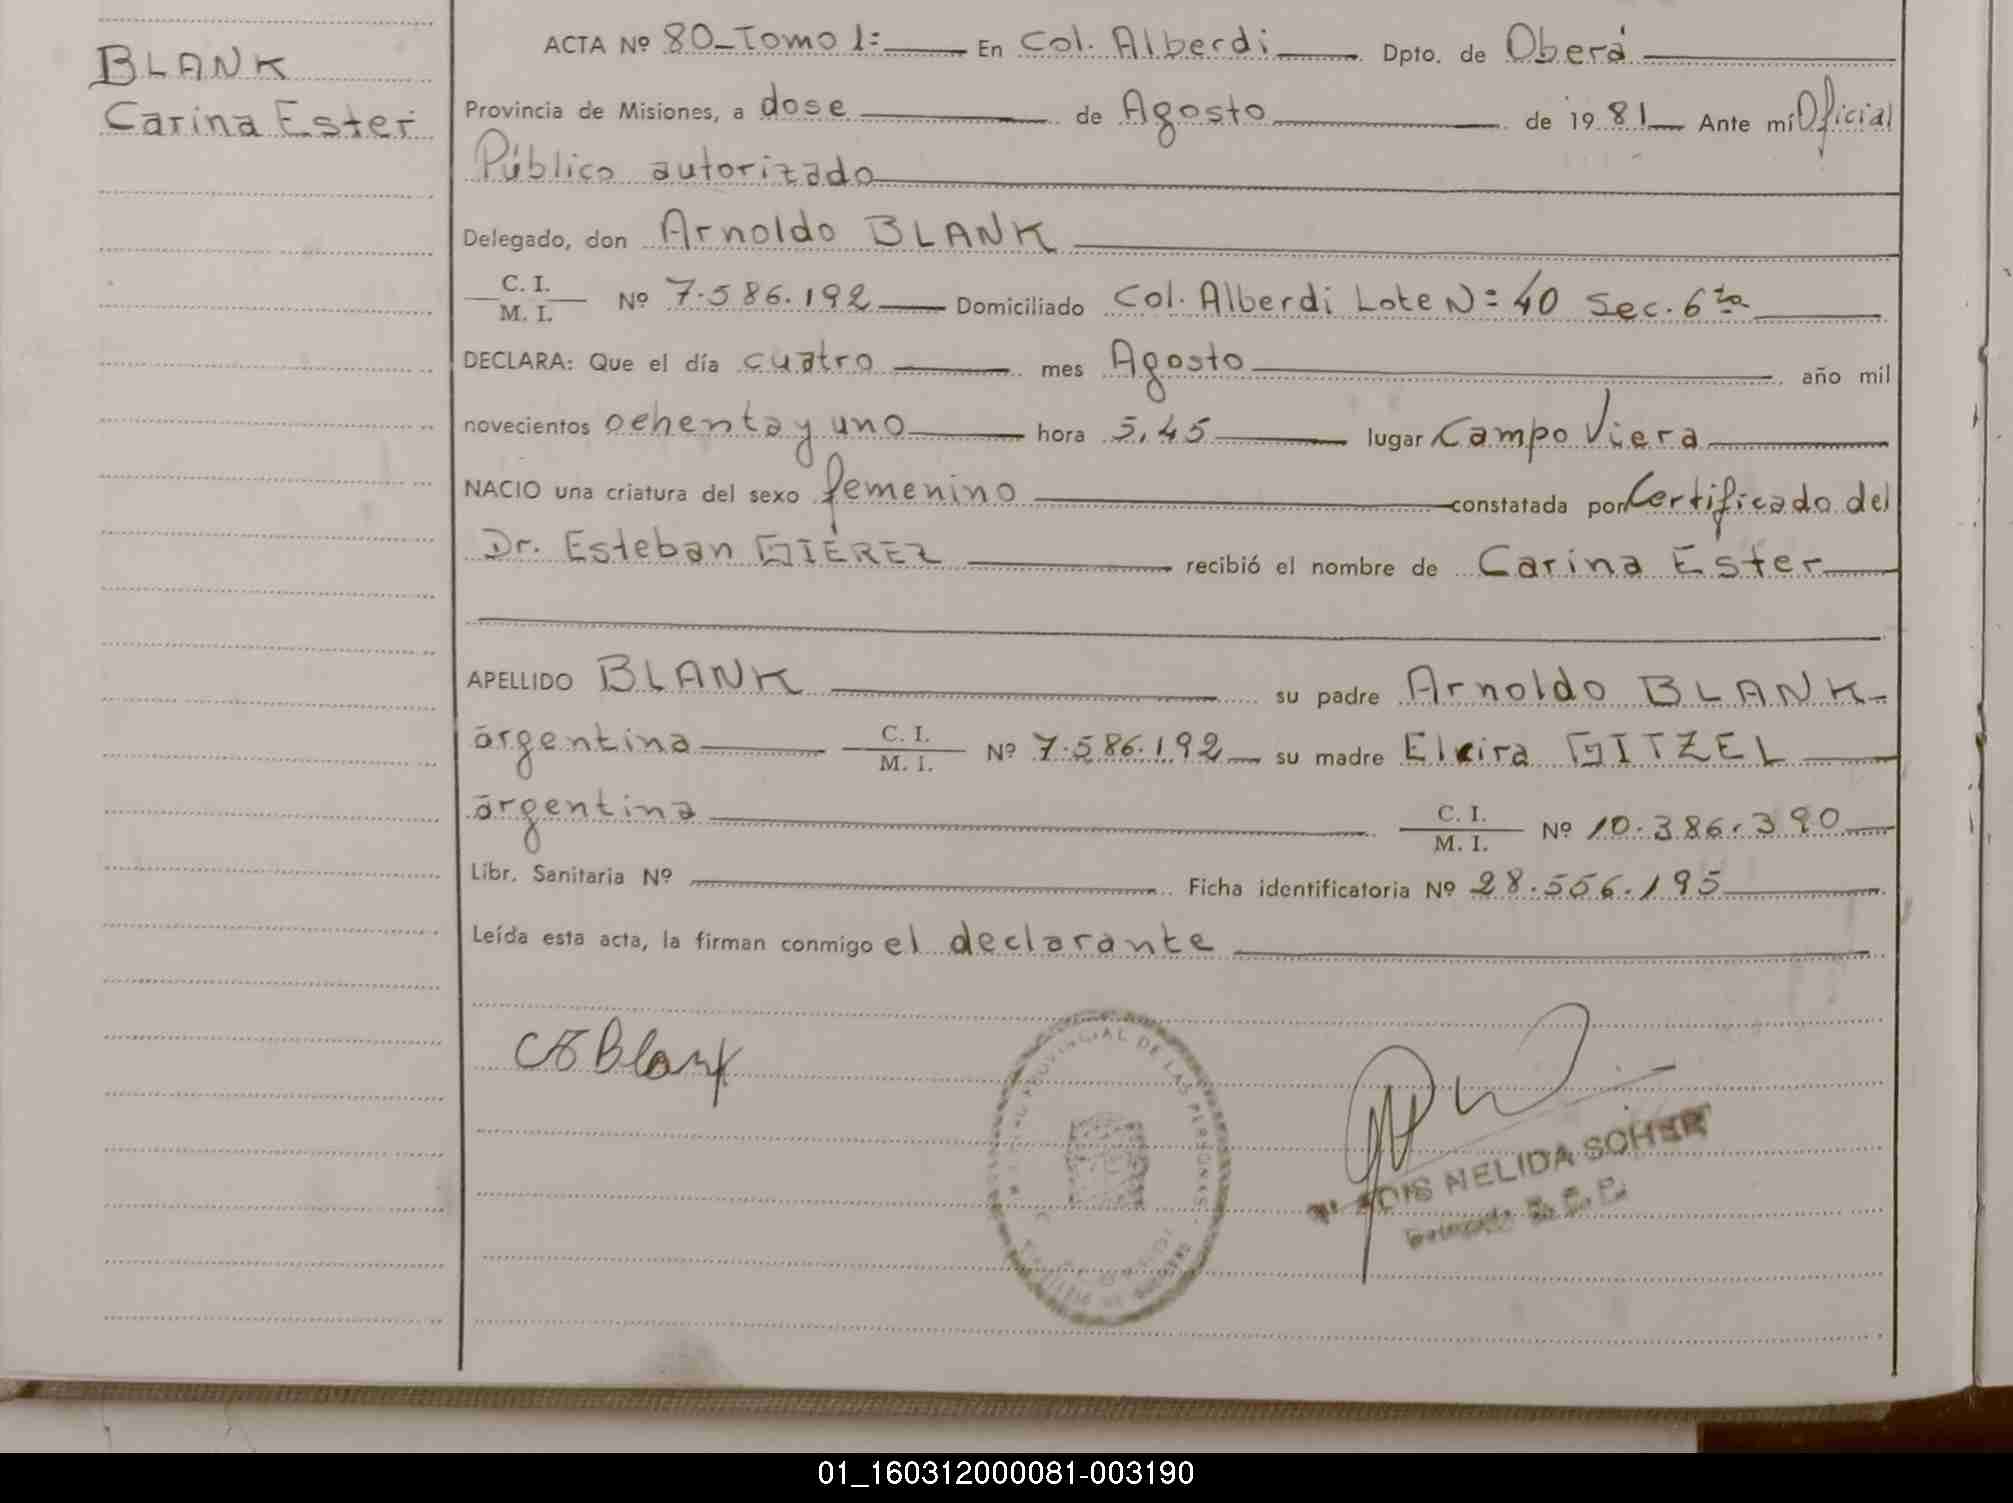 BLANK
Carina Ester
ACTA Nº 80_Tomo 1= En Col. Alberdi Dpto. de Oberá
Provincia de Misiones, a dose de Agosto de 1981 Ante mí Oficial
Público autorizado
Delegado, don Arnoldo BLANK
C. I.
M. I.
Nº 7.586.192 Domiciliado Col. Alberdi Lote N= 40 Sec. 6ta
DECLARA: Que el día cuatro mes Agosto año mil
novecientos ochenta y uno hora 5,45 lugar Campo Viera
NACIO una criatura del sexo femenino constatada por Certificado del
Dr. Esteban GIÉREZ recibió el nombre de Carina Ester
APELLIDO BLANK su padre Arnoldo BLANK-
argentina C. I.
M. I. Nº 7.586.192 su madre Elcira GITZEL
argentina C. I.
M. I. Nº 10.386.390
Libr. Sanitaria Nº Ficha identificatoria Nº 28.556.195
Leída esta acta, la firman conmigo el declarante
Blank
PROVINCIAL DE LAS PERSONAS
NELIDA SOHER
01_160312000081-003190